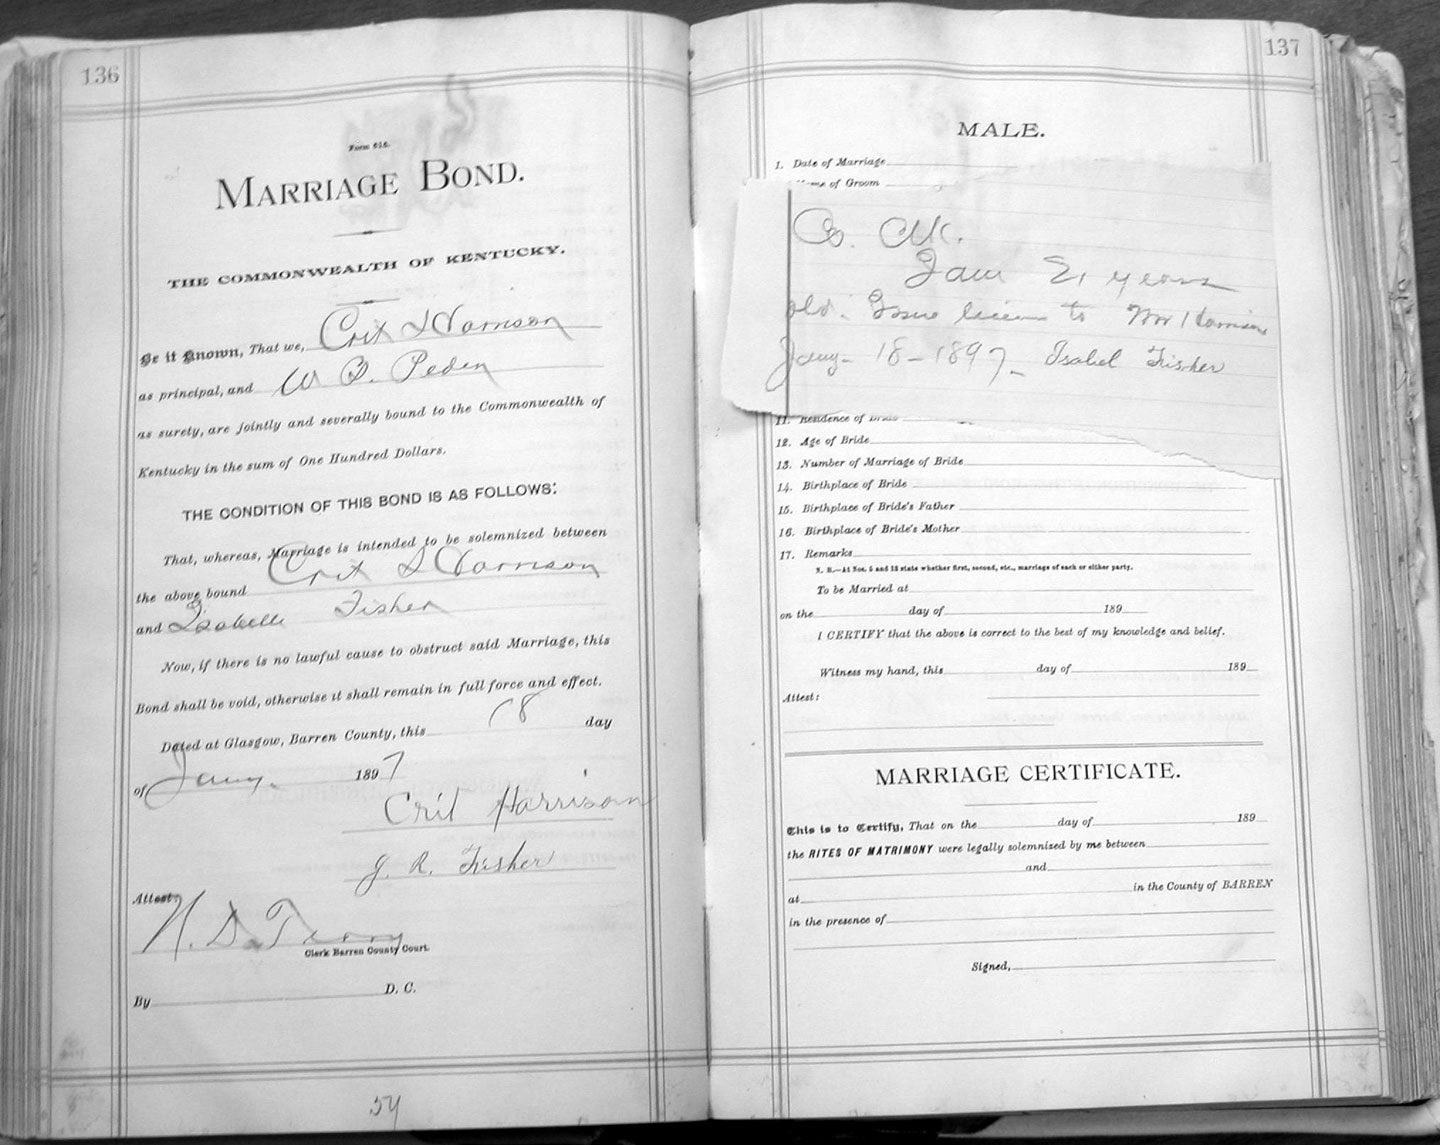 136
Form 616.
MARRIAGE BOND.
THE COMMONWEALTH OF KENTUCKY.
Be it Known, That we, Crit Harrison
as principal, and W B. Peden
as surety, are jointly and severally bound to the Commonwealth of
Kentucky in the sum of One Hundred Dollars.
THE CONDITION OF THIS BOND IS AS FOLLOWS:
That, whereas, Marriage is intended to be solemnized between
the above bound Crit Harrison
and Isabelle Fisher
Now, if there is no lawful cause to obstruct said Marriage, this
Bond shall be void, otherwise it shall remain in full force and effect.
Dated at Glasgow, Barren County, this 18 day
of Jany. 1897
Crit Harrison
J. R. Fisher
Attest:
N. D. Terry
Clerk Barren County Court.
By D. C.
54
137
MALE.
1. Date of Marriage
of Groom
Co. Clk.
I am 21 years
old. Issue licens to Mr Harrison
Jany- 18-1897- Isabel Fisher
11. Residence of Bride
12. Age of Bride
13. Number of Marriage of Bride
14. Birthplace of Bride
15. Birthplace of Bride's Father
16. Birthplace of Bride's Mother
17. Remarks
N. B.—At Nos. 5 and 13 state whether first, second, etc., marriage of each or either party.
To be Married at
on the day of 189
I CERTIFY that the above is correct to the best of my knowledge and belief.
Witness my hand, this day of 189
Attest:
MARRIAGE CERTIFICATE.
This is to Certify, That on the day of 189
the RITES OF MATRIMONY were legally solemnized by me between
and
at in the County of BARREN
in the presence of
Signed,